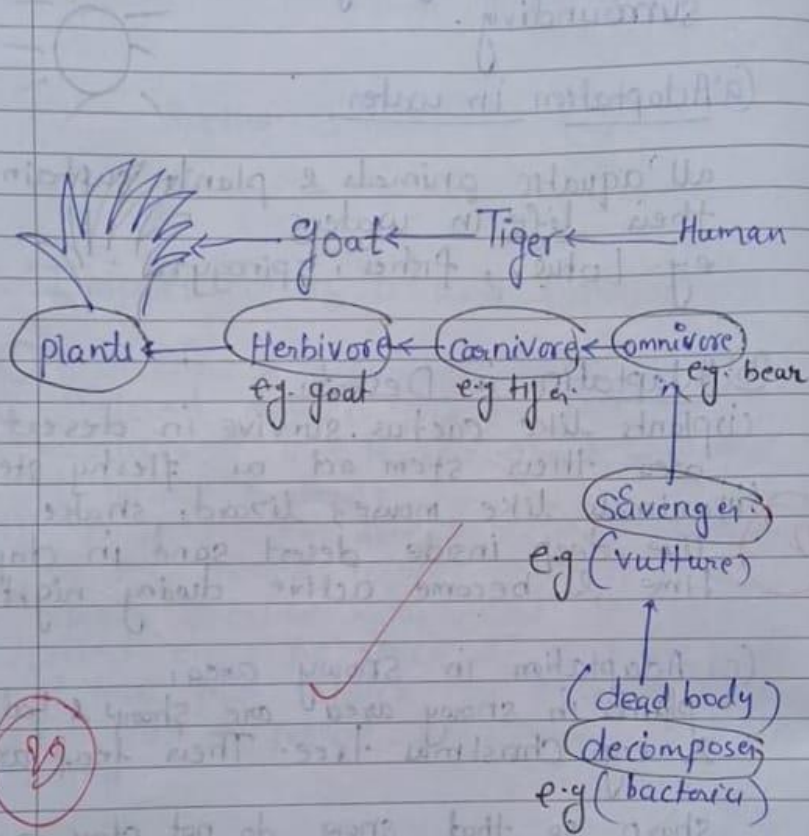 goat Tiger Human
plants Herbivore Carnivore omnivore
e.g. goat e.g tiger e.g. bear
Savenger
e.g (vulture)
(dead body)
decomposer
e.g (bacteria)